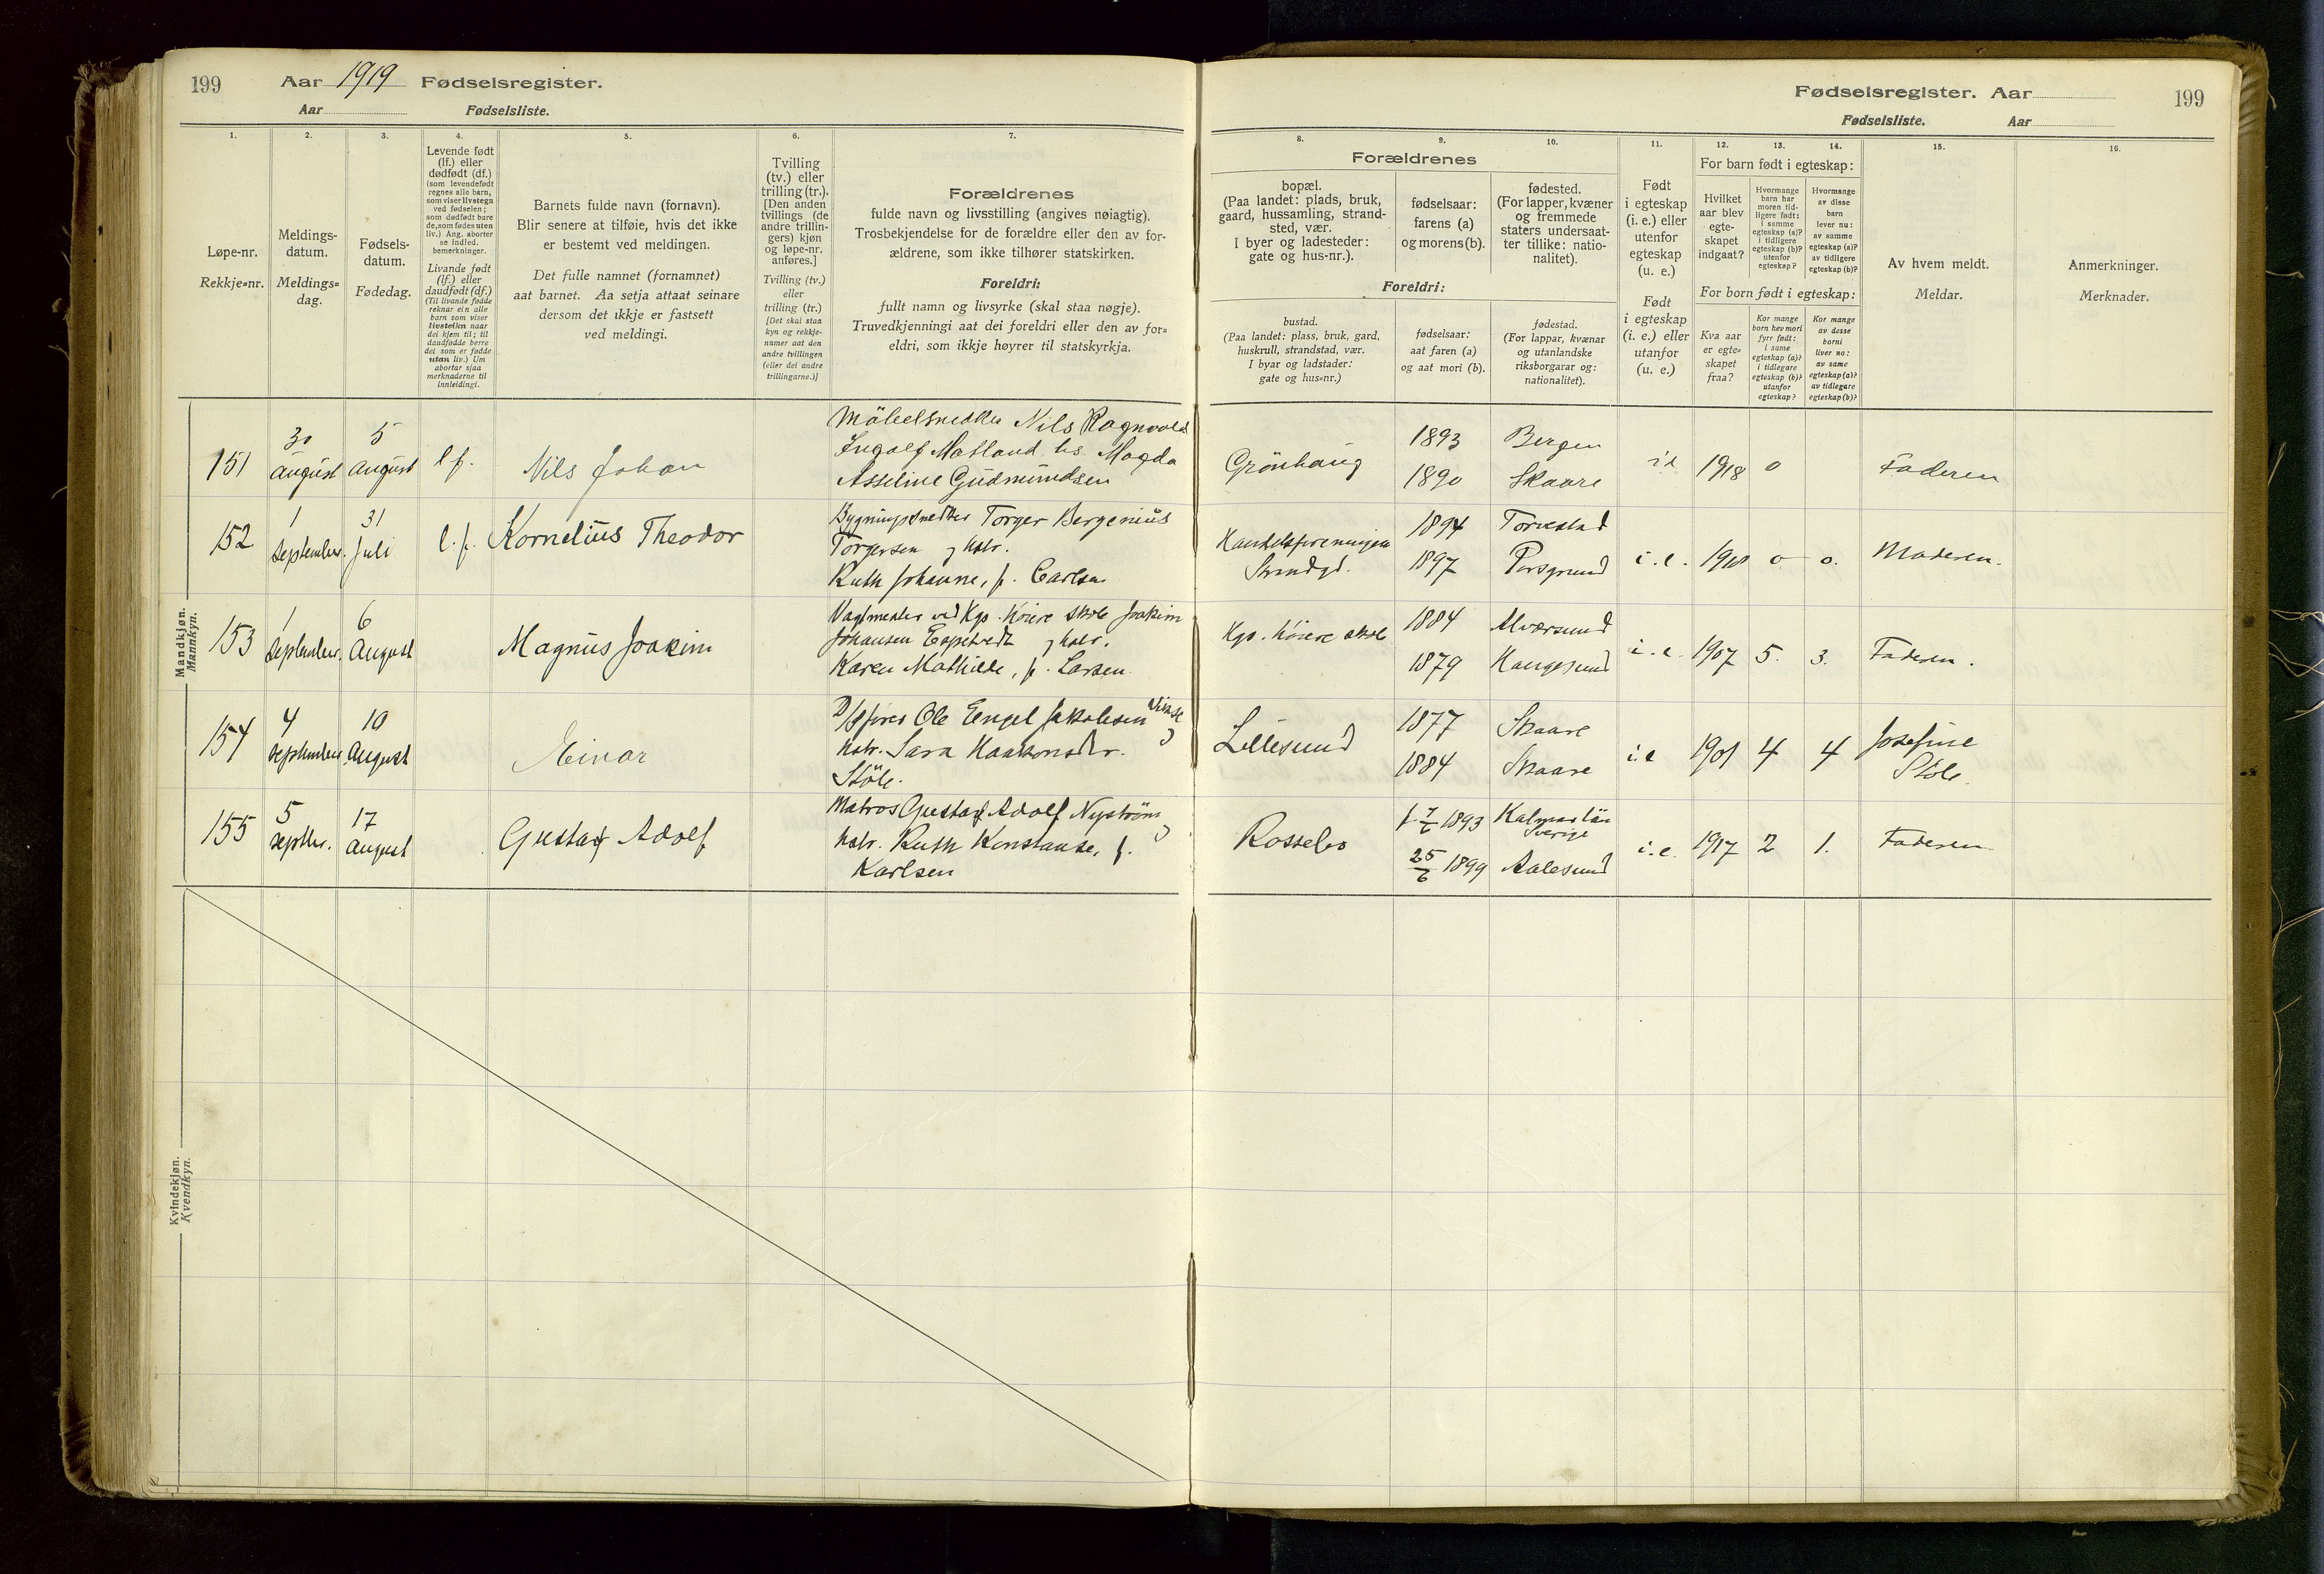 199 Aar 1919 Fødselsregister.
Aar Fødselsliste.
Fødselsregister. Aar 199
Fødselsliste. Aar
1. 2. 3. 4. 5. 6. 7.
8. 9. 10. 11. 12. 13. 14. 15. 16.
Løpe-nr.
Rekkje-nr.
Meldings-
datum.
Meldings-
dag.
Fødsels-
datum.
Fødedag.
Levende født
(lf.) eller
dødfødt (df.)
(som levendefødt
regnes alle barn,
som viser livstegn
ved fødselen;
som dødfødt bare
de, som fødes uten
liv.) Ang. aborter
se indled.
bemerkninger.
Livande født
(lf.) eller
daudfødt (df.)
(Til livande fødde
reknar ein alle
born som viser
livsteikn naar
dei kjem til; til
daudfødde berre
dei som er fødde
utan liv.) Um
abortar sjaa
merknaderne til
innleidingi.
Barnets fulde navn (fornavn).
Blir senere at tilføie, hvis det ikke
er bestemt ved meldingen.
Det fulle namnet (fornamnet)
aat barnet. Aa setja attaat seinare
dersom det ikkje er fastsett
ved meldingi.
Tvilling
(tv.) eller
trilling (tr.).
[Den anden
tvillings (de
andre trillin-
gers) kjøn
og løpe-nr.
anføres.]
Tvilling (tv.)
eller
trilling (tr.)
[Det skal staa
kyn og rekkje-
numer aat den
andre tvillingen
(eller dei andre
trillingarne.)]
Forældrenes
fulde navn og livsstilling (angives nøiagtig).
Trosbekjendelse for de forældre eller den av for-
ældrene, som ikke tilhører statskirken.
Foreldri:
fullt namn og livsyrke (skal staa nøgje).
Truvedkjenningi aat dei foreldri eller den av for-
eldri, som ikkje høyrer til statskyrkja.
Forældrenes
bopæl.
(Paa landet: plads, bruk,
gaard, hussamling, strand-
sted, vær.
I byer og ladesteder:
gate og hus-nr.).
fødselsaar:
farens (a)
og morens (b).
fødested.
(For lapper, kvæner
og fremmede
staters undersaat-
ter tillike: natio-
nalitet).
Foreldri:
bustad.
(Paa landet: plass, bruk, gard,
huskrull, strandstad, vær.
I byar og ladstader:
gate og hus-nr.)
fødselsaar:
aat faren (a)
og aat mori (b).
fødestad.
(For lappar, kvænar
og utanlandske
riksborgarar og:
nationalitet).
Født
i egteskap
(i. e.) eller
utenfor
egteskap
(u. e.)
Født
i egteskap
(i. e.) eller
utanfor
(u. e.)
For barn født i egteskap:
Hvilket
aar blev
egte-
skapet
indgaat?
Hvormange
barn har
moren tid-
ligere født:
i samme
egteskap (a)?
i tidligere
egteskap (b)?
utenfor
egteskap?
Hvormange
av disse
barn
lever nu:
av samme
egteskap (a)?
av tidligere
egteskap (b)?
For born født i egteskap:
Kva aar
er egte-
skapet
fraa?
Kor mange
born hev mori
fyrr født:
i same
egteskap (a)?
i tidlegare
egteskap (b)?
utanfor
egteskap?
Kor mange
av desse
borni
liver no:
av same
egteskap (a)?
av tidlegare
egteskap (b)?
Av hvem meldt.
Meldar.
Anmerkninger.
Merknader.
Mandkjøn.
Mannkyn.
151 30 august 5 august lf. Nils Johan
Möbelsnedker Nils Ragnvald
Ingolf Matland hs. Magda
Asseline Gudmundsen
Grönhaug 1893 Bergen
1890 Skaare
i.e 1918 0 Faderen
152 1 september. 31 juli l.f. Kornelius Theodor
Bygningssnedker Torger Bergenius
Torgersen og hstr.
Ruth Johanne, f. Carlsen
Handelsforeningen
Strandgt.
1894 Torvestad
1897 Porsgrund
i.e. 1918 0 0. Moderen.
153 1 september. 6 August Magnus Joakim
Vagtmester ved Kgs. höiere skole Joakim
Johansen Espetvedt og hstr.
Karen Mathilde, f. Larsen
Kgs. höiere skole 1884 Alversund
1879 Haugesund
i.e. 1907 5. 3. Faderen.
154 4 september 10 August Einar
D/sfører Ole Engel Jakobsen Vikse
og hstr. Sara Haakonsdr.
Støle.
Lillesund 1877 Skaare
1884 Skaare
i.e 1901 4 4 Josefine
Støle.
155 5 septbr. 17 August Gustaf Adolf
Matros Gustaf Adolf Nyström
og hstr. Ruth Konstanse, f.
Karlsen
Rossebø 1893 Kalmar län
Sverige
25/6 1899 Aalesund
i.e. 1917 2 1. Faderen
Kvindekjøn.
Kvendkyn.